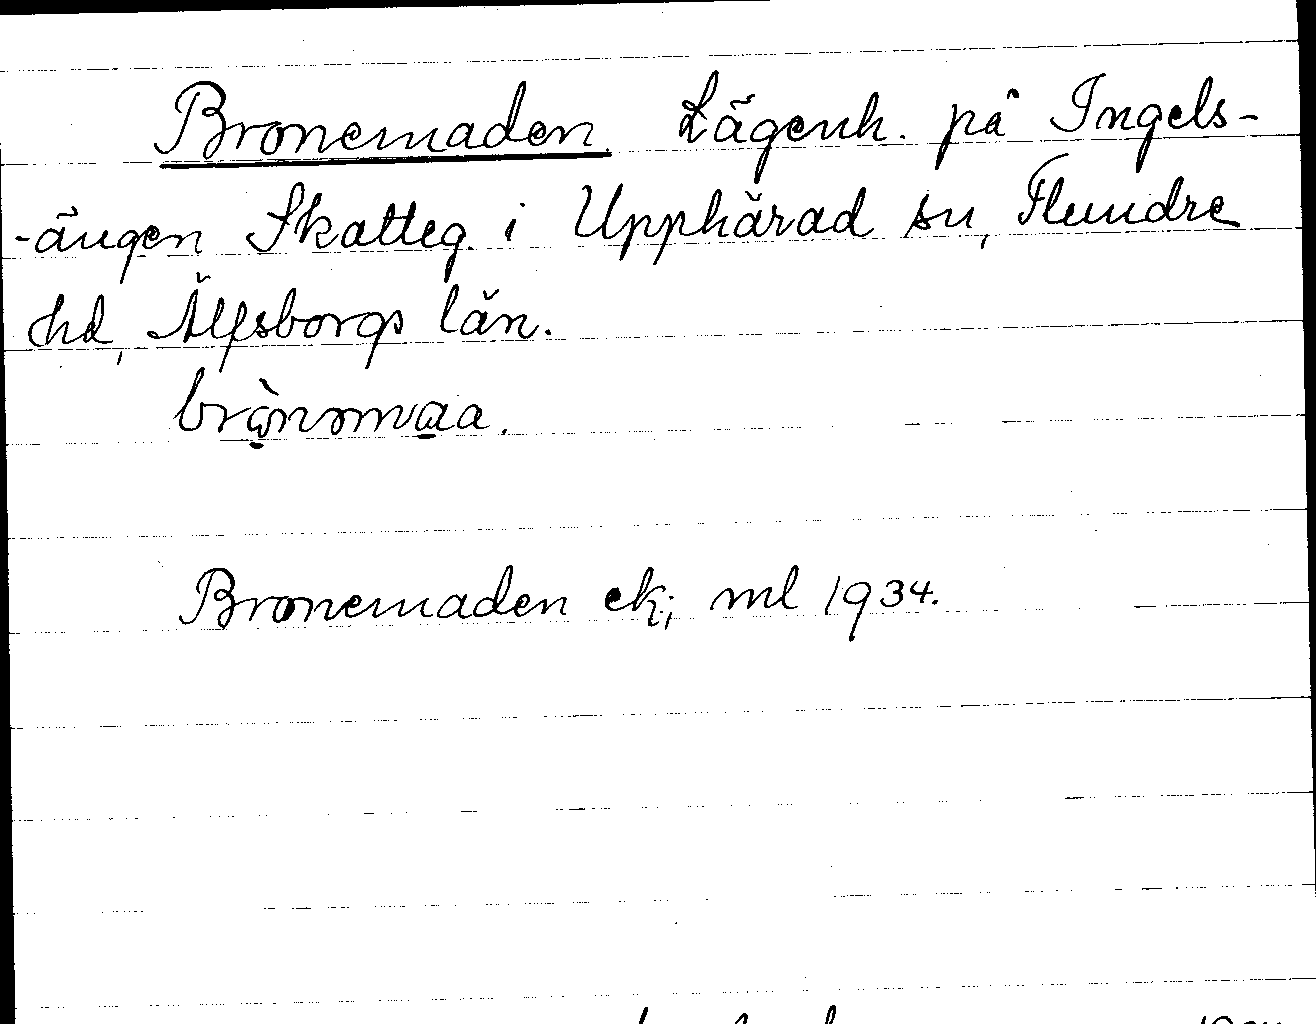 Bronemaden. Lägenh. på Ingels-
-ängen Skatteg. i Upphärad sn, Flundre
hd, Älfsborgs län.

Bronemaden ek; ml 1934.